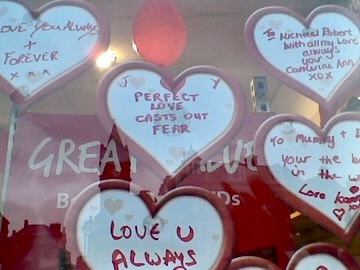 I LOVE YOU ALWAYS
+
FOREVER
x x x
J Y
PERFECT
LOVE
CASTS OUT
FEAR
To Michael Robert
With all my love
always
your
Catherine Ann
XOX
To Mummy +
your the b
in the w
Love
GREAT VALUE
LOVE U
ALWAYS